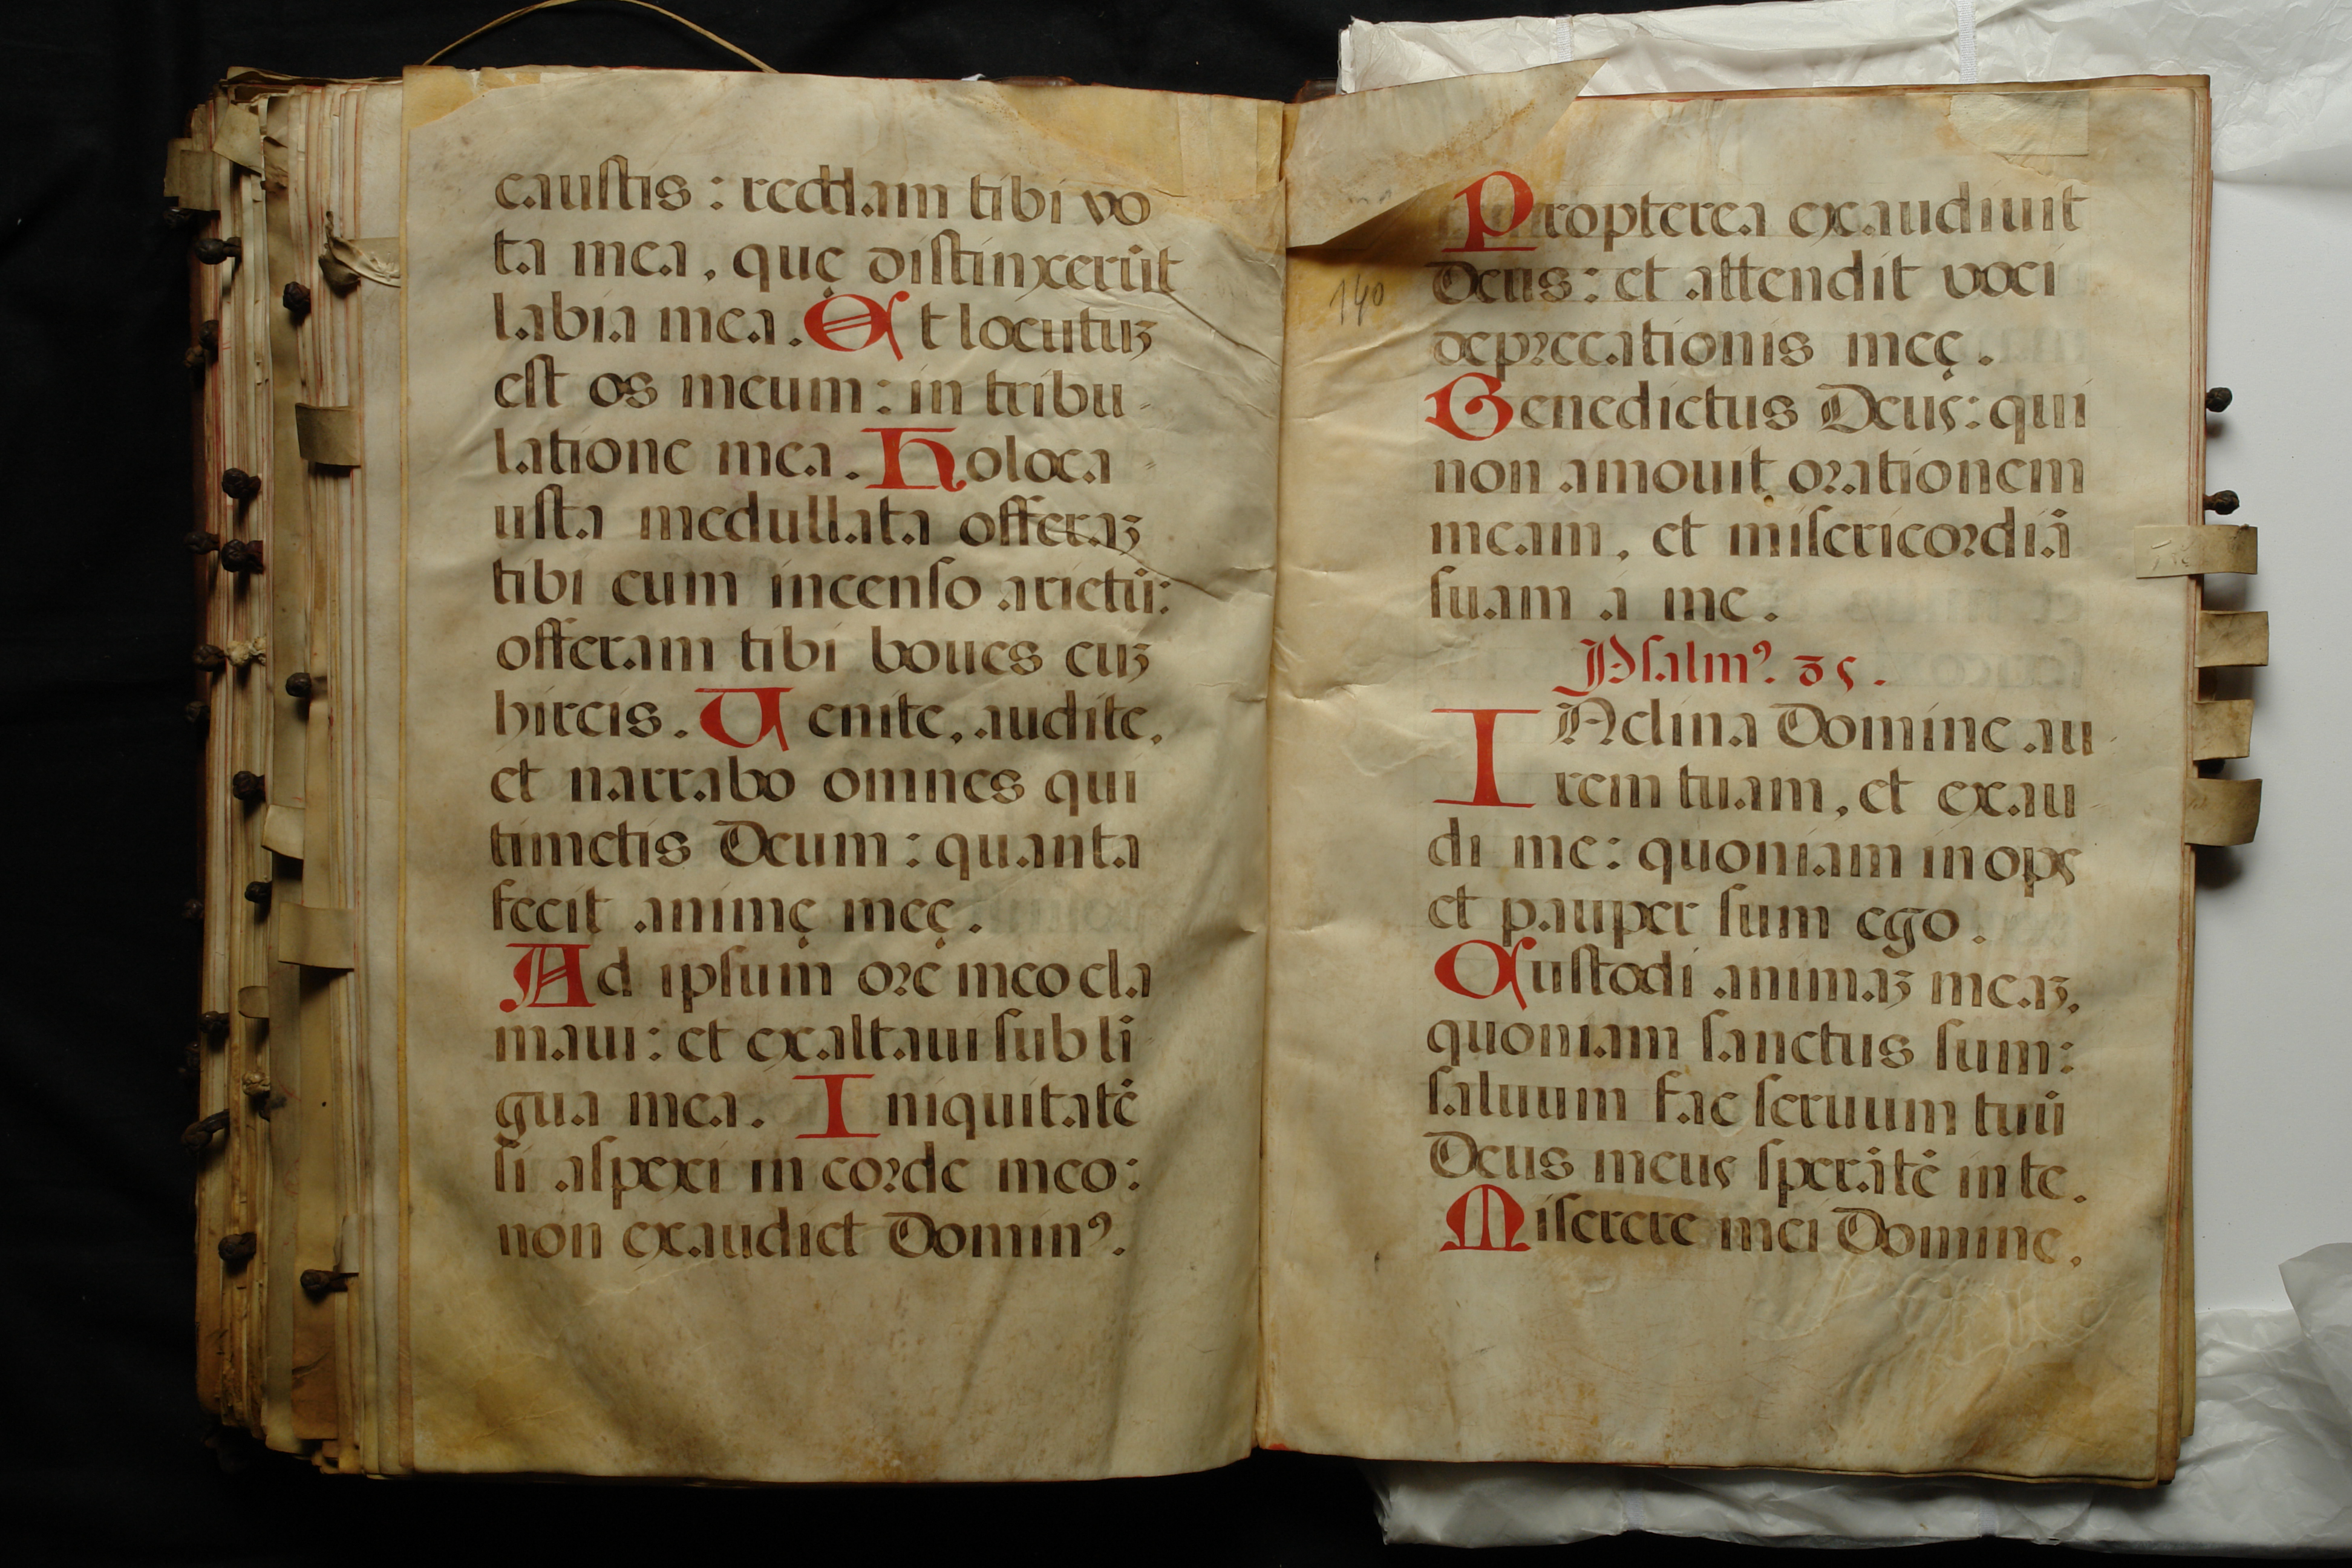 caustis: reddam tibi vo
ta mea, quę distinxerūt
labia mea. Et locutuꝫ
est os meum: in tribu-
latione mea. Holoca-
usta medullata offeraꝫ
tibi cum incenso arietū:
offeram tibi boues cuꝫ
hircis. Uenite, audite,
et narrabo omnes qui
timetis Deum: quanta
fecit animę meę.
Ad ipsum ore meo cla
maui: et exaltaui sub lī
gua mea. Iniquitatē
si aspexi in corde meo:
non exaudiet Dominꝰ.
Propterea exaudiuit
Deus: et attendit voci
deprecationis meę.
Benedictus Deus: qui
non amouit orationem
meam, et misericordiā
suam a me.
Psalmꝰ. 85.
INclina Domine au
rem tuam, et exau
di me: quoniam inops
et pauper sum ego.
Custodi animaꝫ meaꝫ,
quoniam sanctus sum:
saluum fac seruum tuū
Deus meus sperātē in te.
Miserere mei Domine,
140